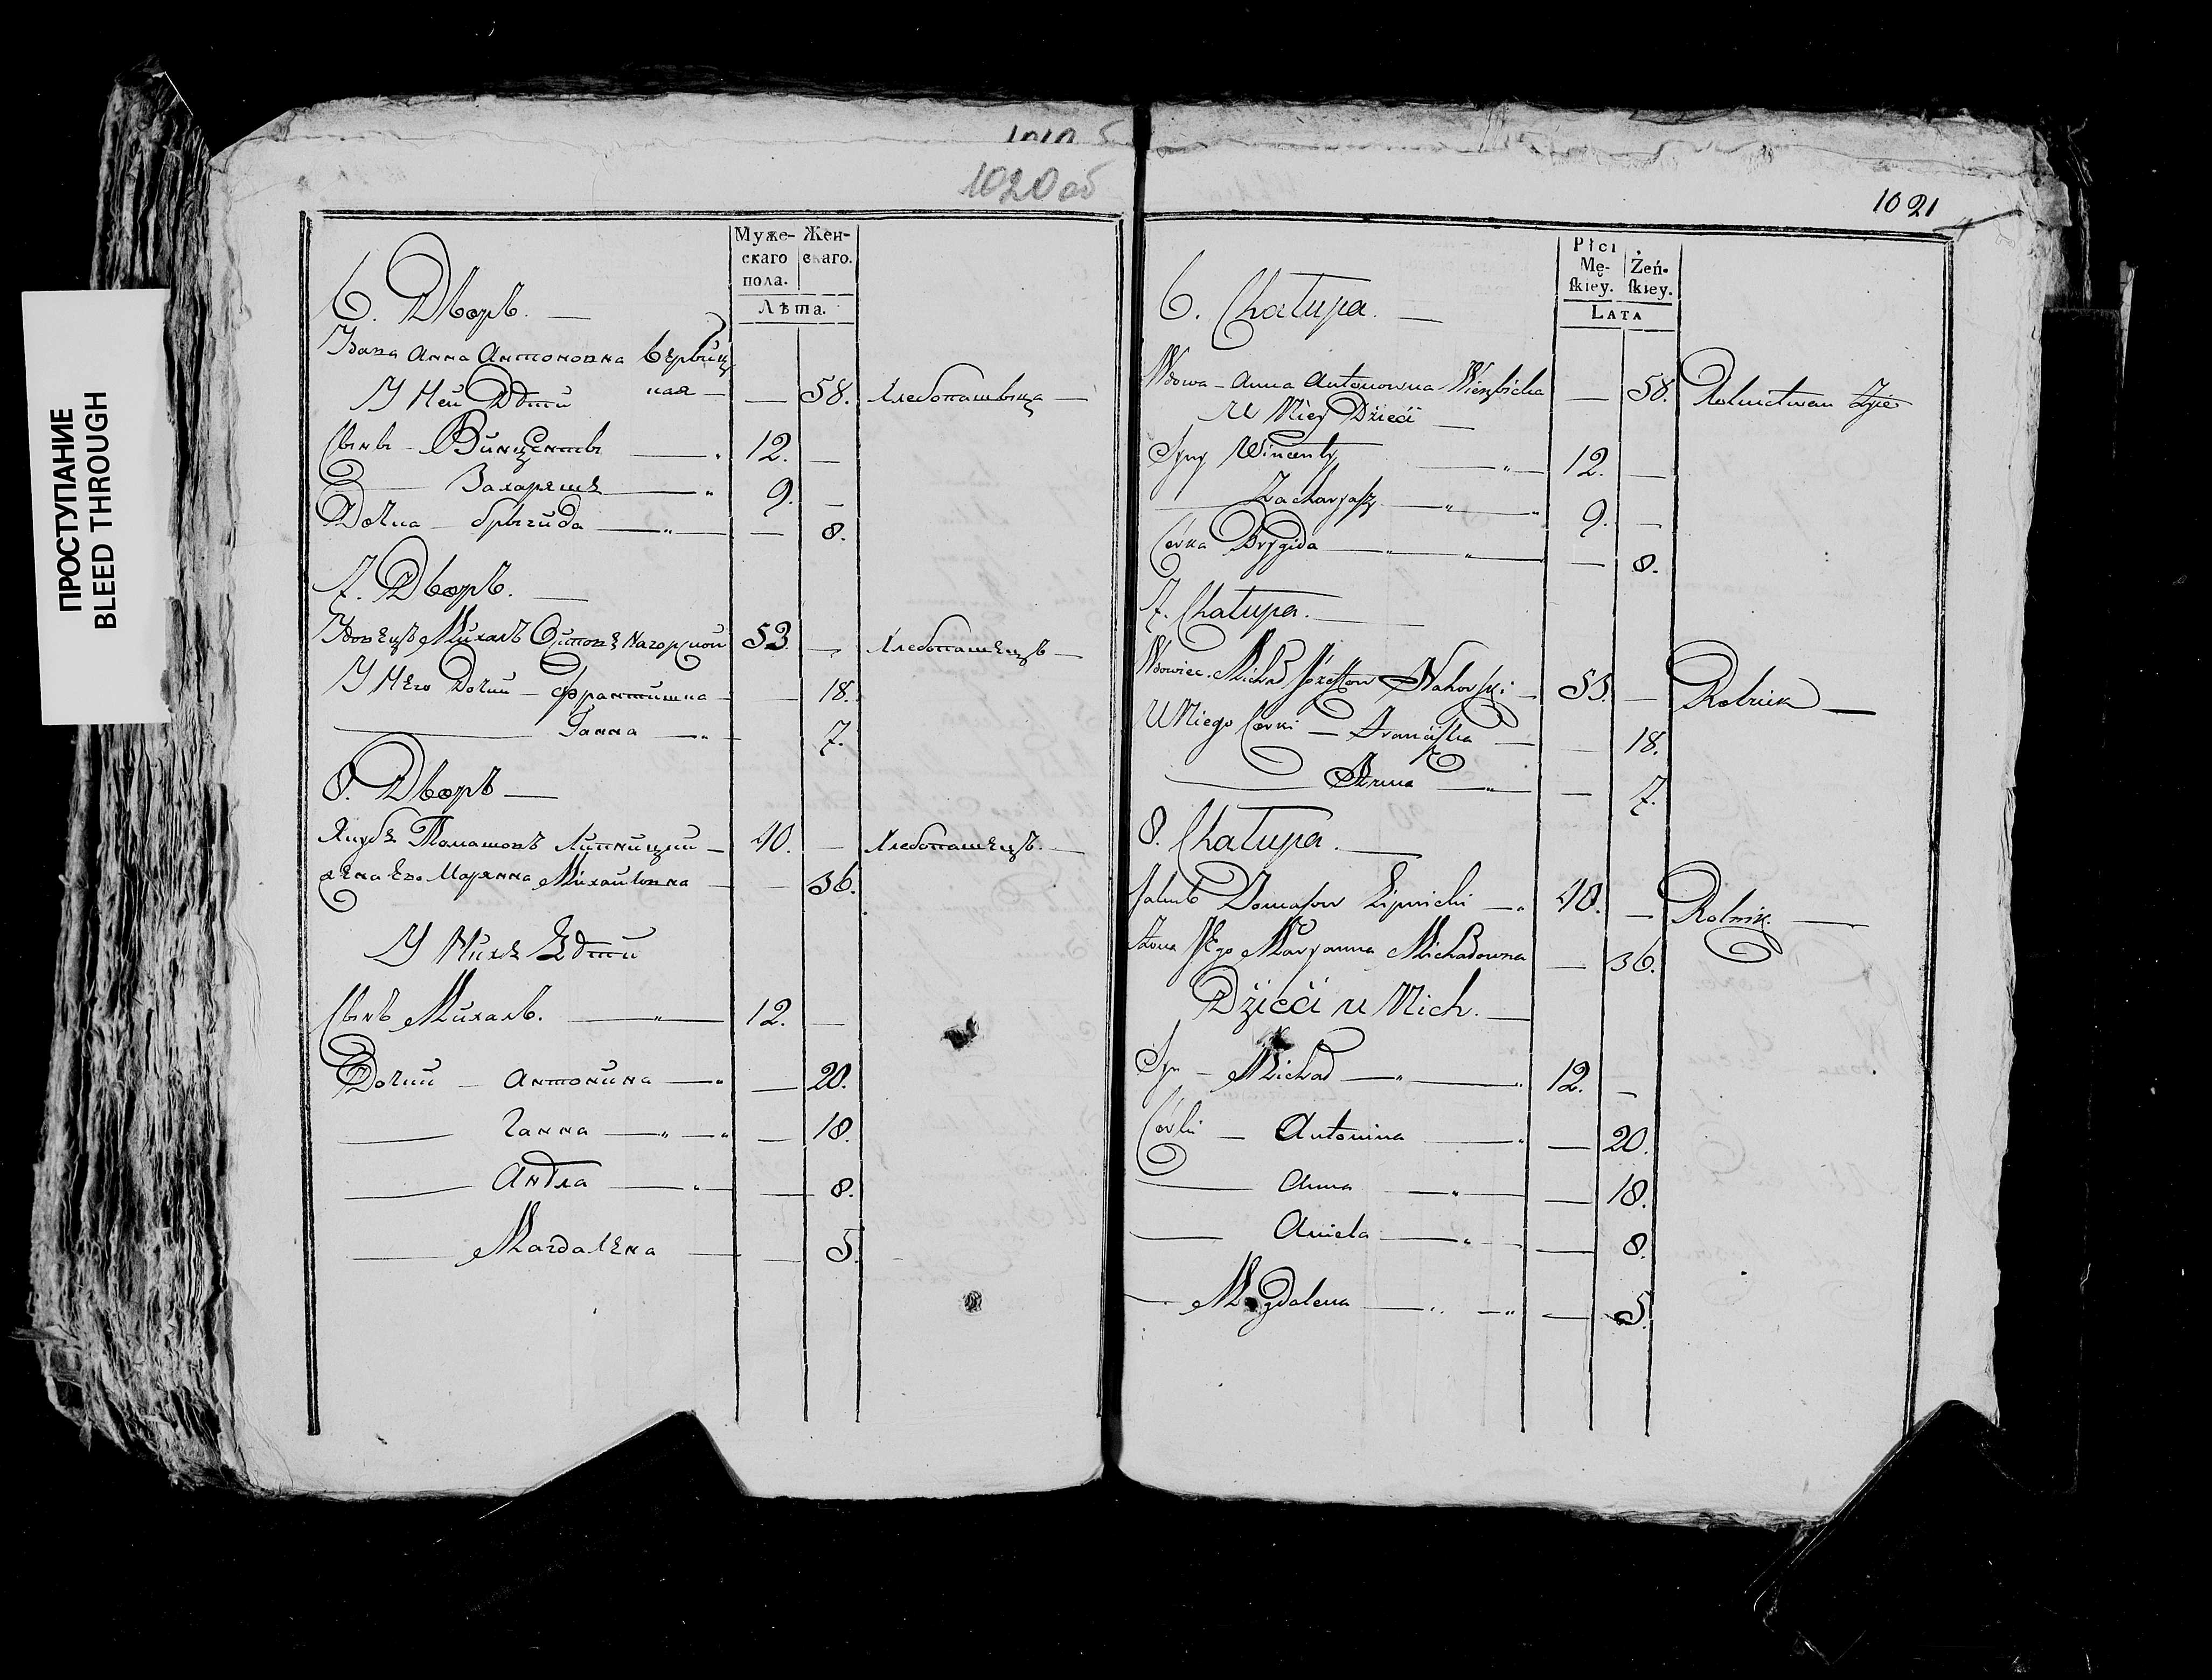 ПРОСТУПАНИЕ
BLEED THROUGH
1020 об
Муже- Жен-
скаго скаго.
пола.
Лѣта.
6. Дворъ. —
Вдова Анна Антоновна Вербиц
кая — — 58. Хлебопашвица —
У Ней Дѣти
Сынъ - Винцентъ — 12. —
— Захаряшъ — 9. —
Дочка — Брыгида — — 8.
7. Дворъ. —
Вдовецъ Михалъ Нагорской 53. — Хлебопашецъ —
У Него Дочки — Францишка — — 18.
— Ганна — 7.
8. Дворъ —
Якубъ Томашовъ Липницкий — 40. — Хлебопашецъ. —
жена Его Марянна Михайловна — — 36.
У Нихъ Дѣти
Сынъ Михалъ. — 12. —
Дочки — Антонина — — 20.
— Ганна — — 18.
— Анѣла — — 8.
— Магдалена — — 5.
1021
Płci
Mę- Żeń-
ſkiey. ſkiey.
LATA
6. Chałupa. —
Wdowa - Anna Antonowna Wierzbicka — 58. Rolnictwem Żyie
U Niey Dzieci —
Syny Wincenty — 12. —
— Zacharyaſz — 9. —
Corka Brygida — — 8.
7. Chałupa. —
Wdowiec. Michał Józefow — 53. — Rolnik —
U Niego Corki — Franciſzka — — 18.
— Anna — — 7.
8. Chałupa. —
Jakub Tomaſow Lipnicki — 40. — Rolnik. —
Żona Jego Maryanna Michałowna — 36.
Dzieci u Nich. —
Syn - Michał — 12. —
Córki — Antonina — — 20.
— Anna — — 18.
— Aniela — — 8.
— Magdalena — — 5.